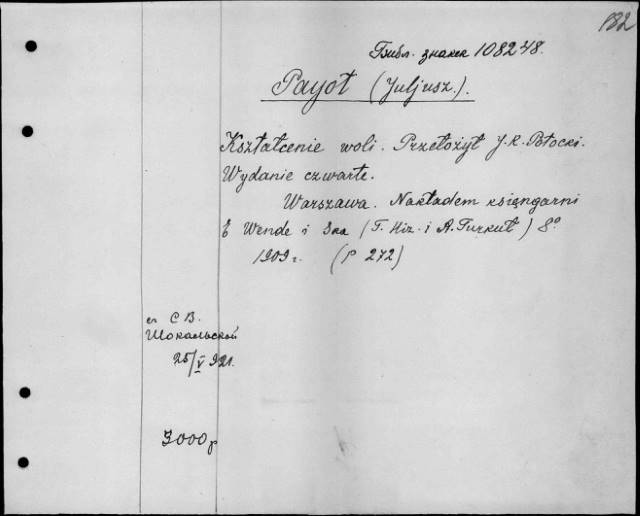 182
Библ. знаки 108248.
Payot (Juljusz.).
Kształcenie woli. Przełożył J. K. Potocki.
Wydanie czwarte.
Warszawa. Nakładem księngarni
E Wende i Ska (T. Hiz. i A. Turkuł) 8º
1909 г. (p 272)
С В.
Шокальской
25/V 921.
3000 р